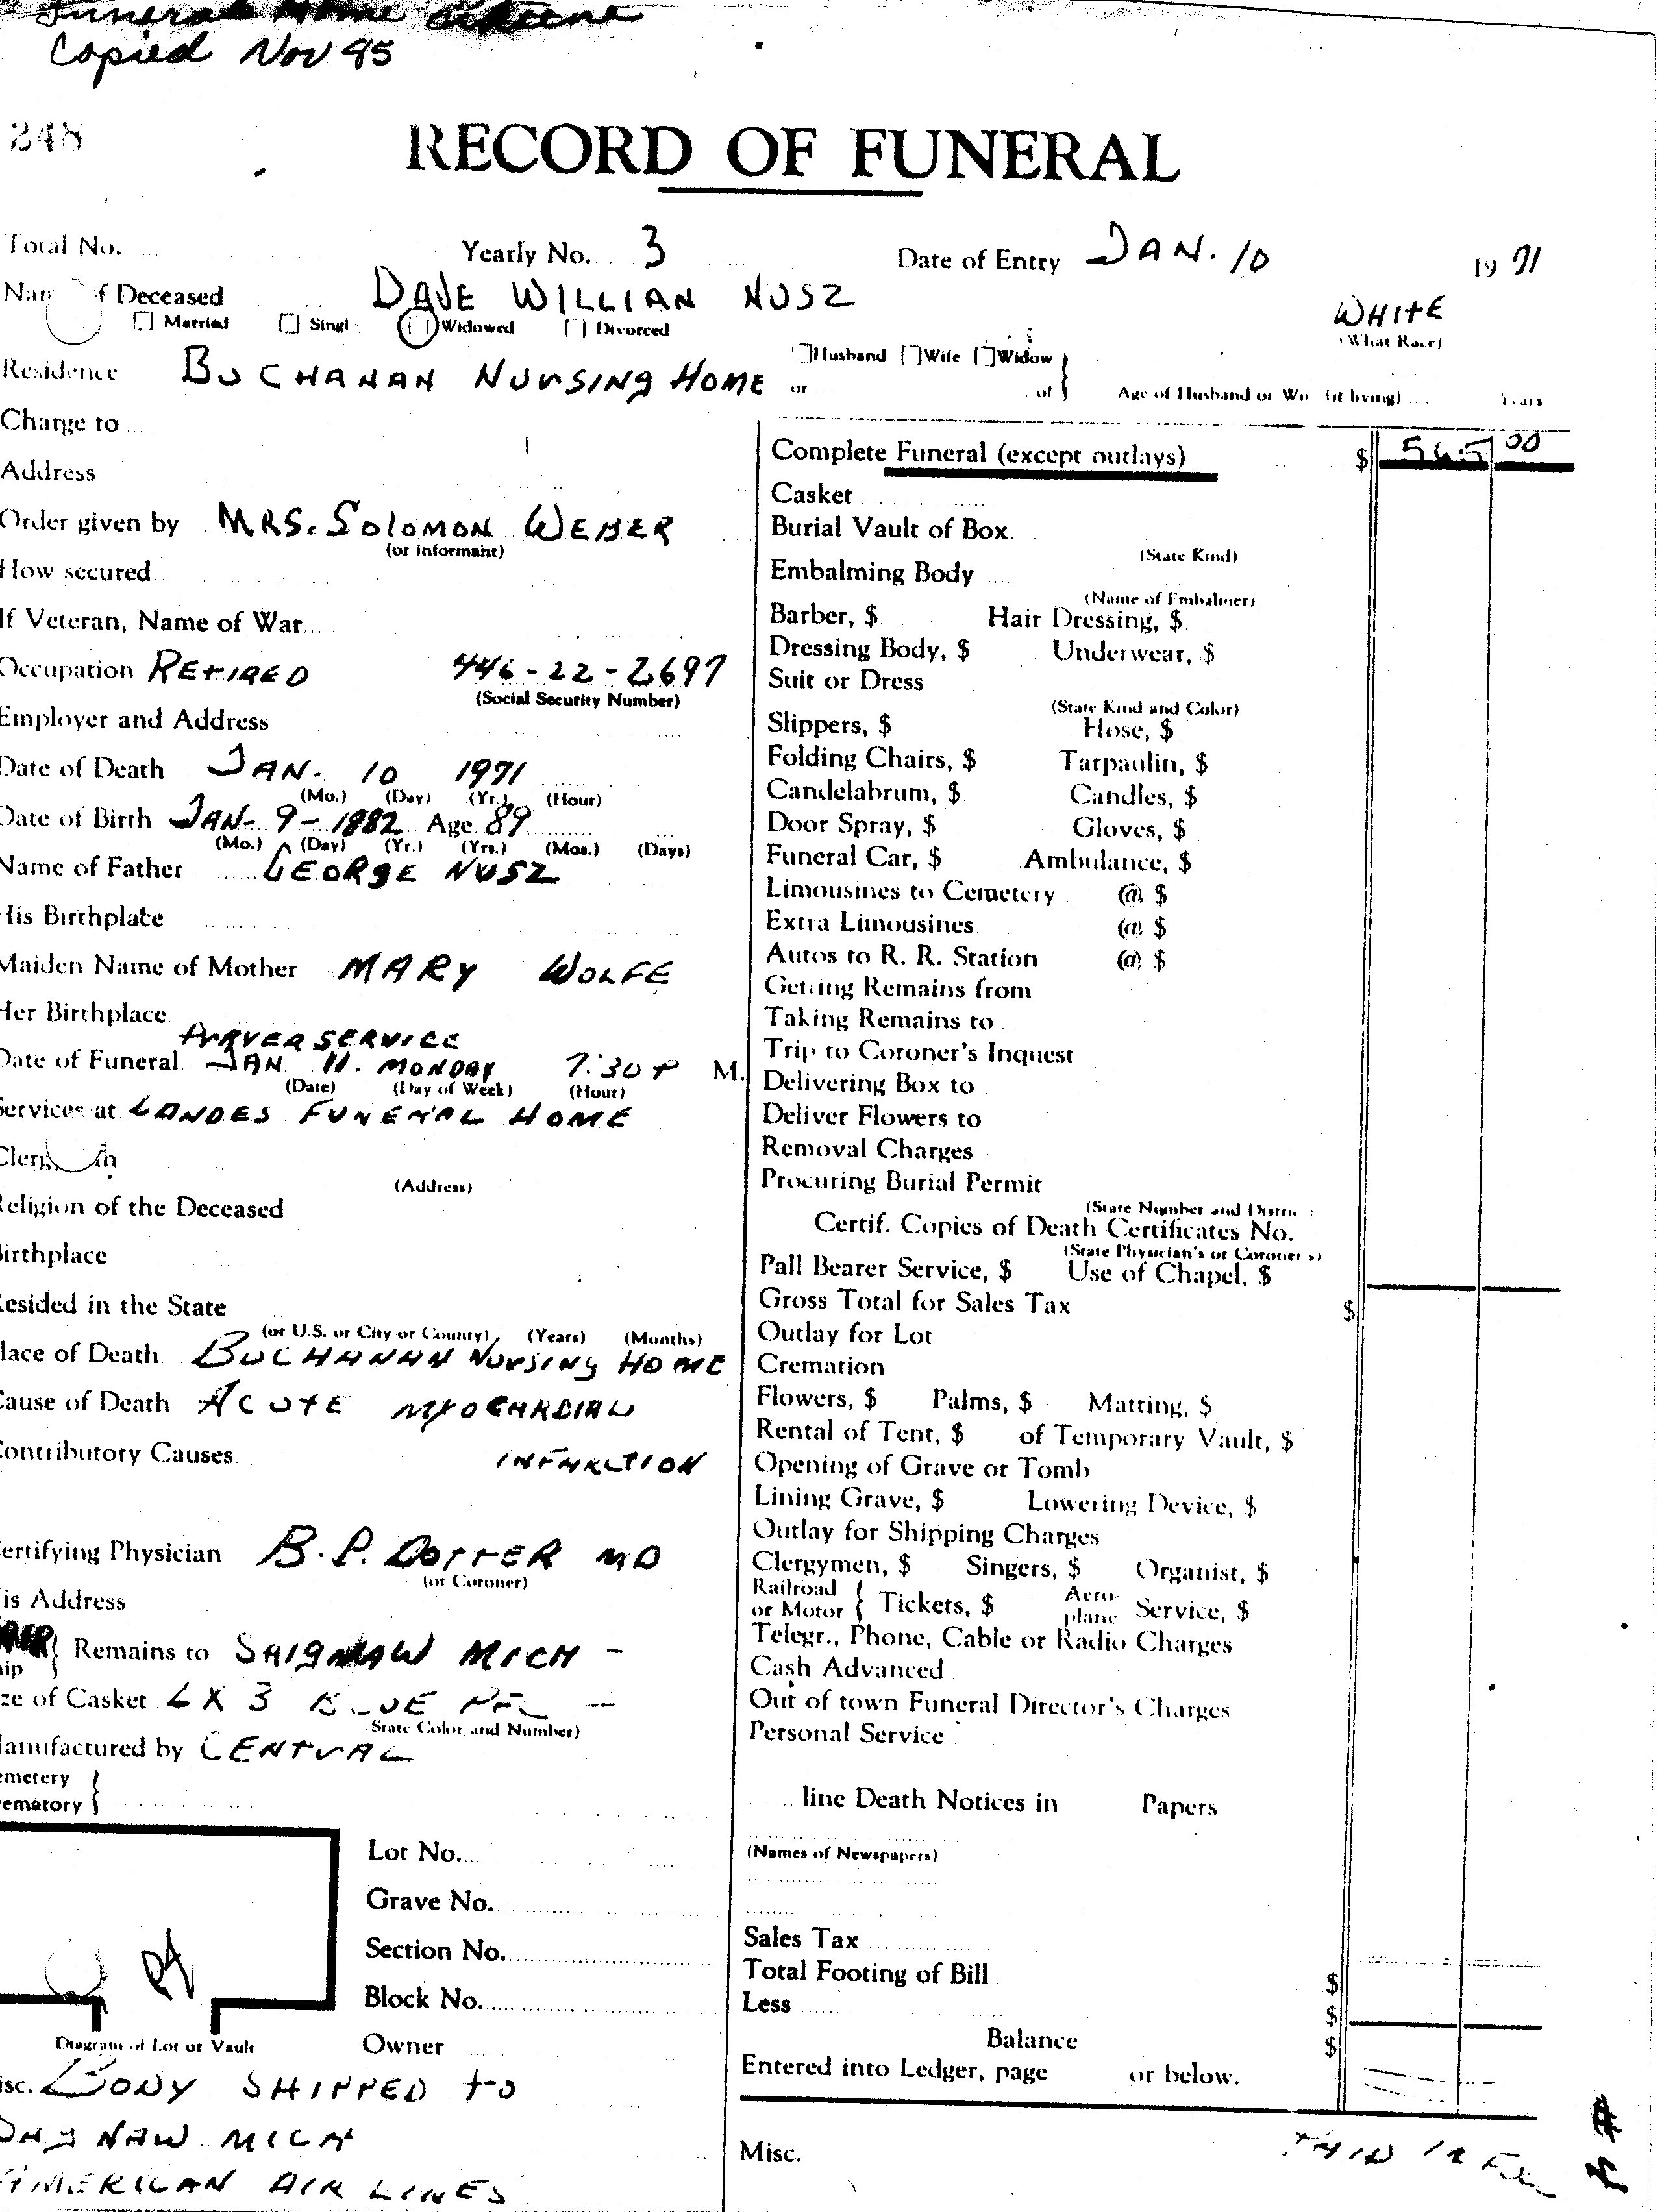 Funeral Home
Copied Nov 95
248
RECORD OF FUNERAL
Total No. Yearly No. 3 Date of Entry JAN. 10 19 71
Nam f Deceased DAVE WILLIAN NUSZ WHITE
Married Singl Widowed Divorced (What Race)
Residence BUCHANAN NURSING HOME Husband Wife Widow or of Age of Husband or Wi (if living) Years
Charge to
Address
Order given by MRS. SOLOMON WEBER
(or informant)
How secured
If Veteran, Name of War
Occupation RETIRED 446-22-2697
(Social Security Number)
Employer and Address
Date of Death JAN. 10 1971
(Mo.) (Day) (Yr.) (Hour)
Date of Birth JAN- 9-1882 Age 89
(Mo.) (Day) (Yr.) (Yrs.) (Mos.) (Days)
Name of Father GEORGE NUSZ
His Birthplace
Maiden Name of Mother MARY WOLFE
Her Birthplace
PRAYER SERVICE
Date of Funeral JAN 11. MONDAY 7:30 P M.
(Date) (Day of Week) (Hour)
Services at LANDES FUNERAL HOME
Clerg
(Address)
Religion of the Deceased
Birthplace
Resided in the State
(or U.S. or City or County) (Years) (Months)
lace of Death BUCHANAN NURSING HOME
Cause of Death ACUTE MYOCARDIAL
Contributory Causes INFARCTION
ertifying Physician B.P. DOTTER MD
(or Coroner)
is Address
hip Remains to SAIGNAW MICH -
ze of Casket 6 X 3 BLUE
(State Color and Number)
Manufactured by CENTRAL
emetery
rematory
Lot No.
Grave No.
Section No.
Block No.
Diagram of Lot or Vault Owner
isc. BODY SHIPPED to
SAGNAW MICH
AMERICAN AIR LINES
Complete Funeral (except outlays) $ 565 00
Casket
Burial Vault of Box
(State Kind)
Embalming Body
(Name of Embalmer)
Barber, $ Hair Dressing, $
Dressing Body, $ Underwear, $
Suit or Dress
(State Kind and Color)
Slippers, $ Hose, $
Folding Chairs, $ Tarpaulin, $
Candelabrum, $ Candles, $
Door Spray, $ Gloves, $
Funeral Car, $ Ambulance, $
Limousines to Cemetery @ $
Extra Limousines @ $
Autos to R. R. Station @ $
Getting Remains from
Taking Remains to
Trip to Coroner's Inquest
Delivering Box to
Deliver Flowers to
Removal Charges
Procuring Burial Permit
(State Number and Distric
Certif. Copies of Death Certificates No.
(State Physician's or Coroner's)
Pall Bearer Service, $ Use of Chapel, $
Gross Total for Sales Tax $
Outlay for Lot
Cremation
Flowers, $ Palms, $ Matting, $
Rental of Tent, $ of Temporary Vault, $
Opening of Grave or Tomb
Lining Grave, $ Lowering Device, $
Outlay for Shipping Charges
Clergymen, $ Singers, $ Organist, $
Railroad or Motor Tickets, $ Aero-plane Service, $
Telegr., Phone, Cable or Radio Charges
Cash Advanced
Out of town Funeral Director's Charges
Personal Service
line Death Notices in Papers
(Names of Newspapers)
Sales Tax
Total Footing of Bill $
Less $
Balance $
Entered into Ledger, page or below.
Misc. PAID IN